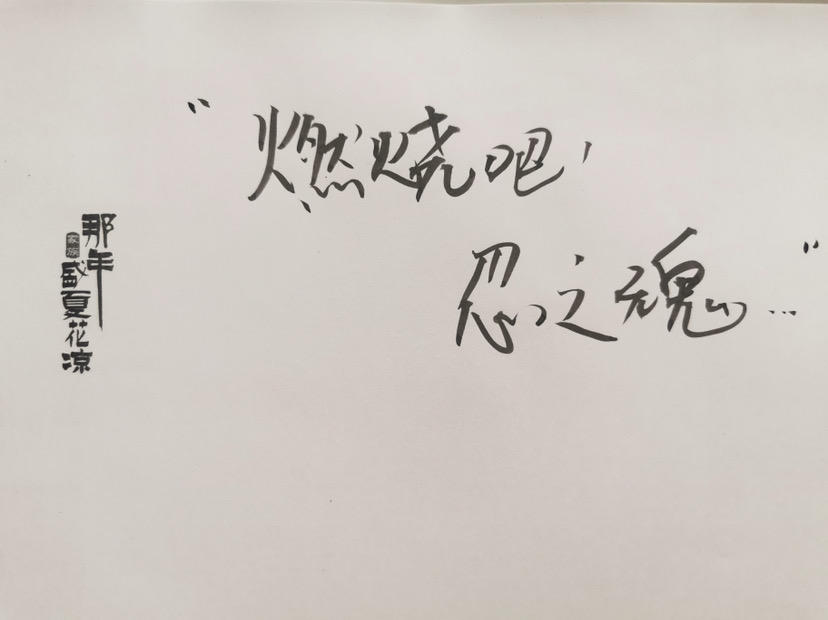 “燃烧吧，
忍之魂...”
那年
家族
盛夏花凉